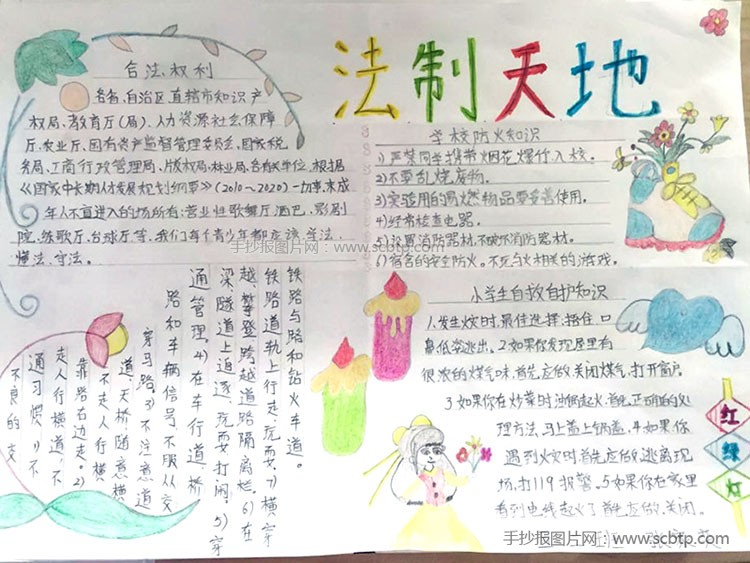 法制天地
合法权利
各省、自治区直辖市知识产
权局、教育厅(局)、人力资源社会保障
厅、农业厅、国有资产监督管理委员会、国家税
务局、工商行政管理局、版权局、林业局、各有关单位，根据
《国家中长期人才发展规划纲要》(2010～2020)
年人不宜进入的场所有：营业性歌舞厅、酒巴、影剧
院、练歌厅、台球厅等，我们每个青少年都应该学法、
懂法、守法。
学校防火知识
1)严禁同学携带烟花爆竹入校。
2)不要乱烧废物。
3)实验用的易燃物品要妥善使用。
4)经常检查电器。
5)设置消防器材，不破坏消防器材。
6)宿舍的安全防火。不玩与火相关的游戏。
手抄报图片网：www.scbtp.com
小学生自救自护知识
1.发生火灾时，最佳选择：捂住口
鼻低姿逃出。2.如果你发现屋里有
很浓的煤气味，首先应做：关闭煤气，打开窗户
3.如果你在炒菜时油锅起火，首先正确的处
理方法，马上盖上锅盖。4.如果你
遇到火灾时首先应做：逃离现
场，打119报警。5.如果你在家里
看到电线起火了首先应做：关闭。
红
绿
灯
不良的交
通习惯：1)不
走人行横道，不
靠路右边走。2)
不走人行横
道、天桥，随意横
穿马路。3)不注意道
路和车辆信号，不服从交
通管理。4)在车行道、桥
梁、隧道上追逐、玩耍、打闹。5)穿
越、攀登、跨越道路隔离栏。6)在
铁路道轨上行走、玩耍。7)横穿
铁路与路和钻火车道。
手抄报图片网：www.scbtp.com